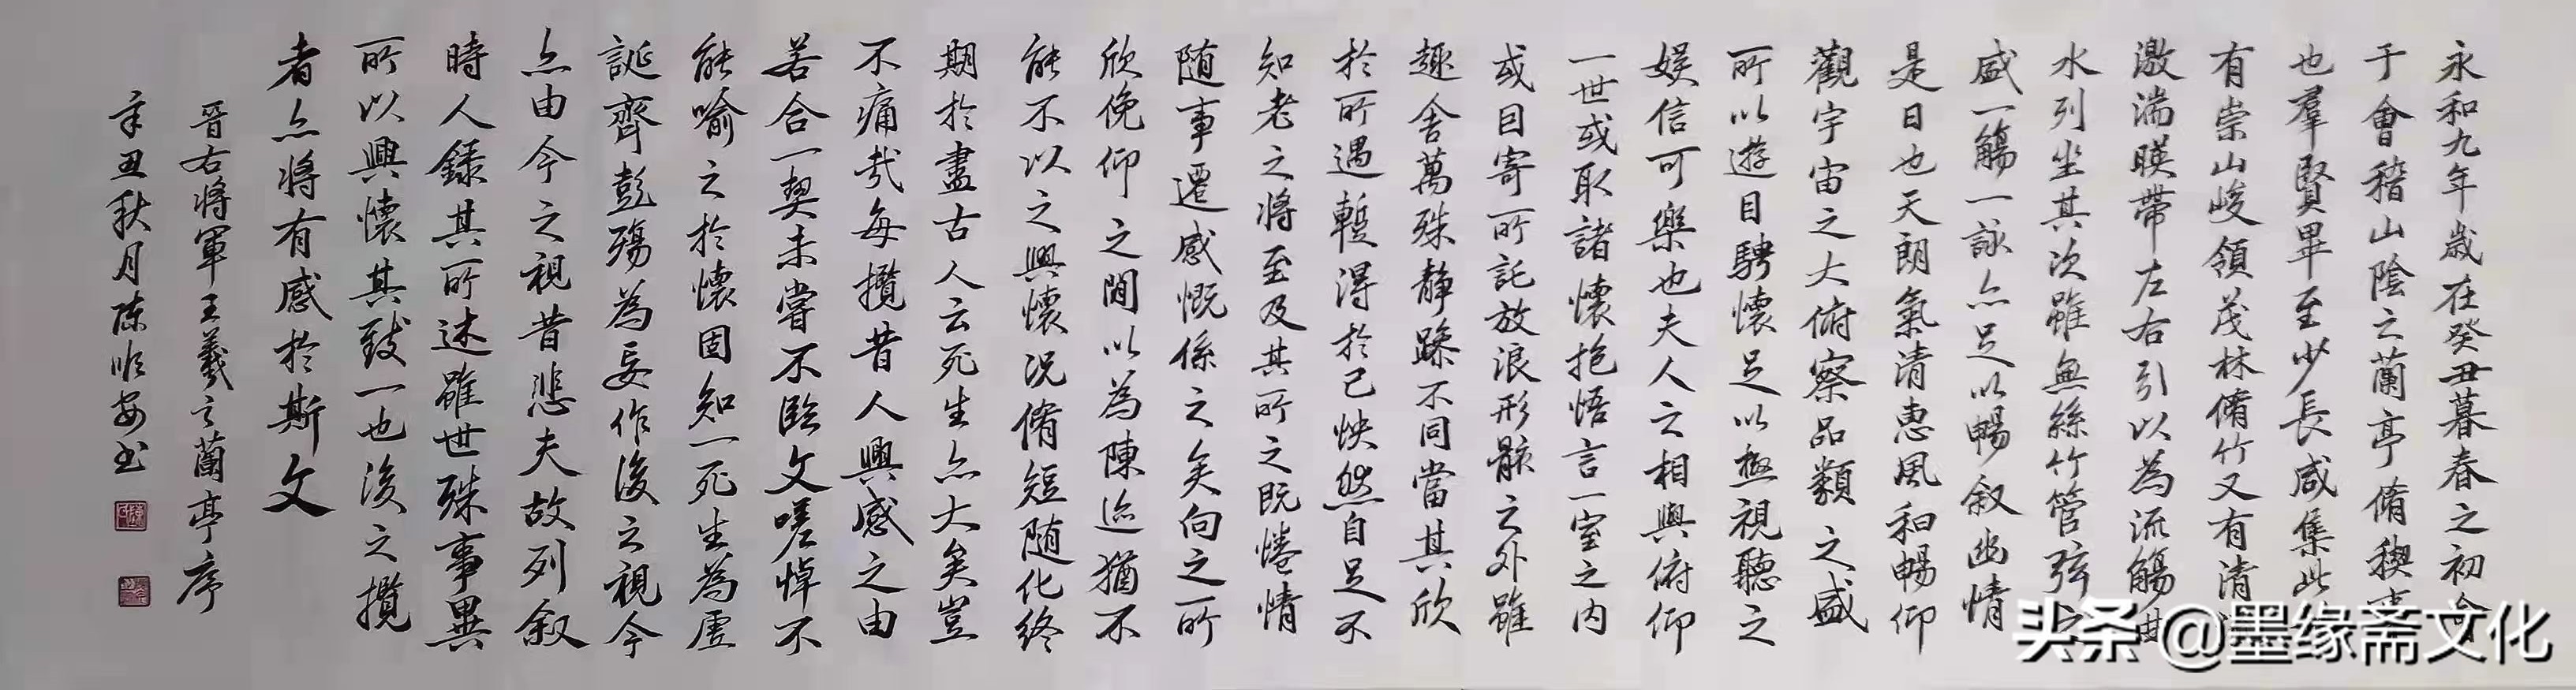 永和九年歲在癸丑暮春之初會
于會稽山陰之蘭亭脩稧事
也羣賢畢至少長咸集此
有崇山峻領茂林脩竹又有清
激湍暎帶左右引以為流觴曲
水列坐其次雖無絲竹管弦之
盛一觴一詠亦足以暢叙幽情
是日也天朗氣清惠風和暢仰
觀宇宙之大俯察品類之盛
所以遊目騁懷足以極視聽之
娱信可樂也夫人之相與俯仰
一世或取諸懷抱悟言一室之内
或目寄所託放浪形骸之外雖
趣舍萬殊静躁不同當其欣
於所遇暫得於己怏然自足不
知老之將至及其所之既惓情
隨事遷感慨係之矣向之所
欣俛仰之間以為陳迹猶不
能不以之興懷況脩短隨化終
期於盡古人云死生亦大矣豈
不痛哉每攬昔人興感之由
若合一契未嘗不臨文嗟悼不
能喻之於懷固知一死生為虛
誕齊彭殤為妄作後之視今
亦由今之視昔悲夫故列叙
時人録其所述雖世殊事異
所以興懷其致一也後之攬
者亦將有感於斯文
晉右將軍王羲之蘭亭序
辛丑秋月陈順安书
头条@墨缘斋文化